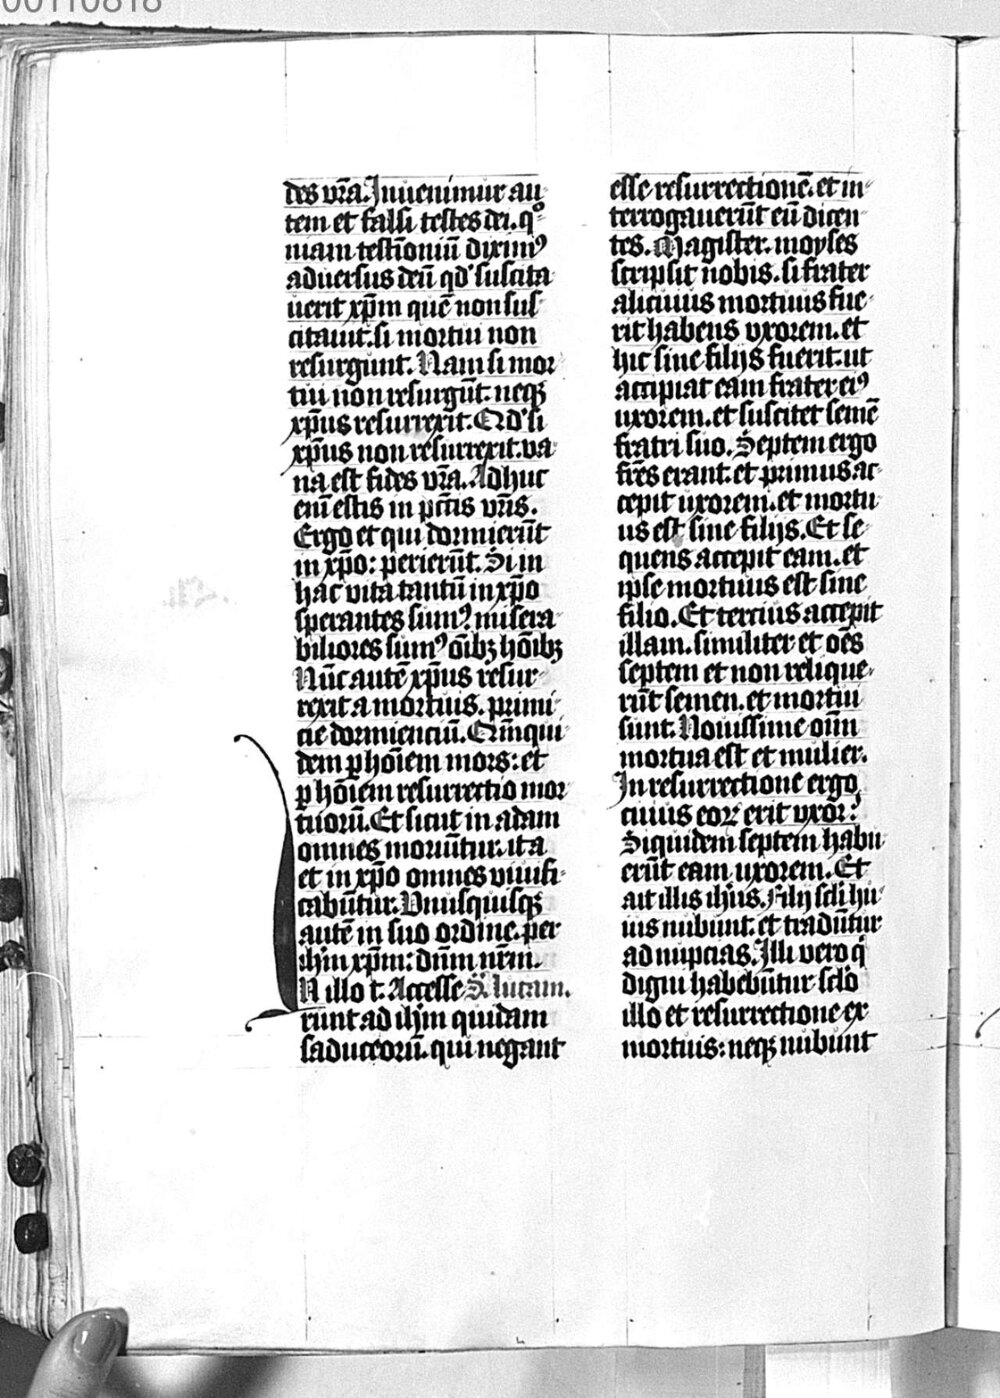 00110818
des vr̄a. Inuenimur au
tem et falsi testes dei. qͦ
niam testīoniū diximꝰ
aduersus deū qd' suscita
uerit xp̄m quē non sus
citauit. si mortui non
resurgunt. Nam si mor
tui non resurgūt. neqꝫ
xp̄us resurrexit. Qd' si
xp̄us non resurrexit. va
na est fides vr̄a. Adhuc
eni estis in pctīs vr̄is.
Ergo et qui dormierūt
in xp̄o: perierūt. Si in
hac vita tantū in xp̄o
sperantes sumꝰ misera
biliores sumꝰ oībꝫ hoībꝫ
Nūc autē xp̄us resur
rexit a mortuis. primi
cie dormienciū. Qm̄ qui
dem ꝑ hoīem mors: et
ꝑ hoīem resurrectio mor
tuorū. Et sicut in adam
omnes moriūtur. ita
et in xp̄o omnes viuifi
cabūtur. Vnusquisqꝫ
autē in suo ordine. per
ihm̄ xp̄m: dūm nr̄m.
IN illo t. Accesse S. lucam.
runt ad ihm̄ quidam
saduceorū. qui negant
esse resurrectionē. et in
terrogauerūt eū dicen
tes. Magister. moyses
scripsit nobis. si frater
alicuius mortuus fue
rit habens vxorem. et
hic sine filijs fuerit. ut
accipiat eam frater eiꝰ
uxorem. et suscitet semē
fratri suo. Septem ergo
frēs erant. et primus ac
cepit uxorem. et mortu
us est sine filijs. Et se
quens accepit eam. et
ipse mortuus est sine
filio. Et tercius accepit
illam. similiter et oēs
septem et non relique
rūt semen. et mortui
sunt. Nouissime oīm
mortua est et mulier.
In resurrectione ergo
cuius eoꝝ erit vxor?
Siquidem septem habu
erūt eam uxorem. Et
ait illis ihūs. Filij scl̄i hu
ius nubunt. et tradūtur
ad nupcias. Illi vero q̇
digni habebūtur scl̄o
illo et resurrectione ex
mortuis: neqꝫ nubunt